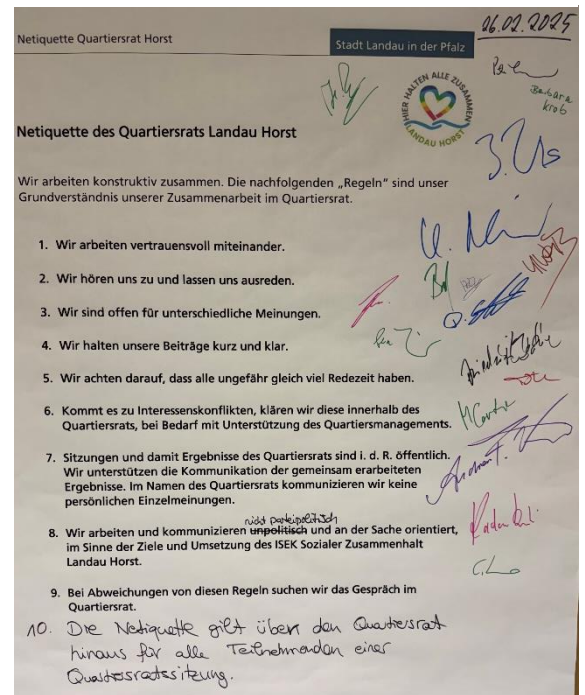 Netiquette Quartiersrat Horst
Stadt Landau in der Pfalz
26.02.2025
Barbara
Krob
HIER HALTEN ALLE ZUSAMMEN
LANDAU HORST
Netiquette des Quartiersrats Landau Horst
Wir arbeiten konstruktiv zusammen. Die nachfolgenden „Regeln“ sind unser
Grundverständnis unserer Zusammenarbeit im Quartiersrat.
1. Wir arbeiten vertrauensvoll miteinander.
2. Wir hören uns zu und lassen uns ausreden.
3. Wir sind offen für unterschiedliche Meinungen.
4. Wir halten unsere Beiträge kurz und klar.
5. Wir achten darauf, dass alle ungefähr gleich viel Redezeit haben.
6. Kommt es zu Interessenskonflikten, klären wir diese innerhalb des
Quartiersrats, bei Bedarf mit Unterstützung des Quartiersmanagements.
7. Sitzungen und damit Ergebnisse des Quartiersrats sind i. d. R. öffentlich.
Wir unterstützen die Kommunikation der gemeinsam erarbeiteten
Ergebnisse. Im Namen des Quartiersrats kommunizieren wir keine
persönlichen Einzelmeinungen.
nicht parteipolitisch
8. Wir arbeiten und kommunizieren unpolitisch und an der Sache orientiert,
im Sinne der Ziele und Umsetzung des ISEK Sozialer Zusammenhalt
Landau Horst.
9. Bei Abweichungen von diesen Regeln suchen wir das Gespräch im
Quartiersrat.
10. Die Netiquette gilt über den Quartiersrat
hinaus für alle Teilnehmenden einer
Quartiersratssitzung.